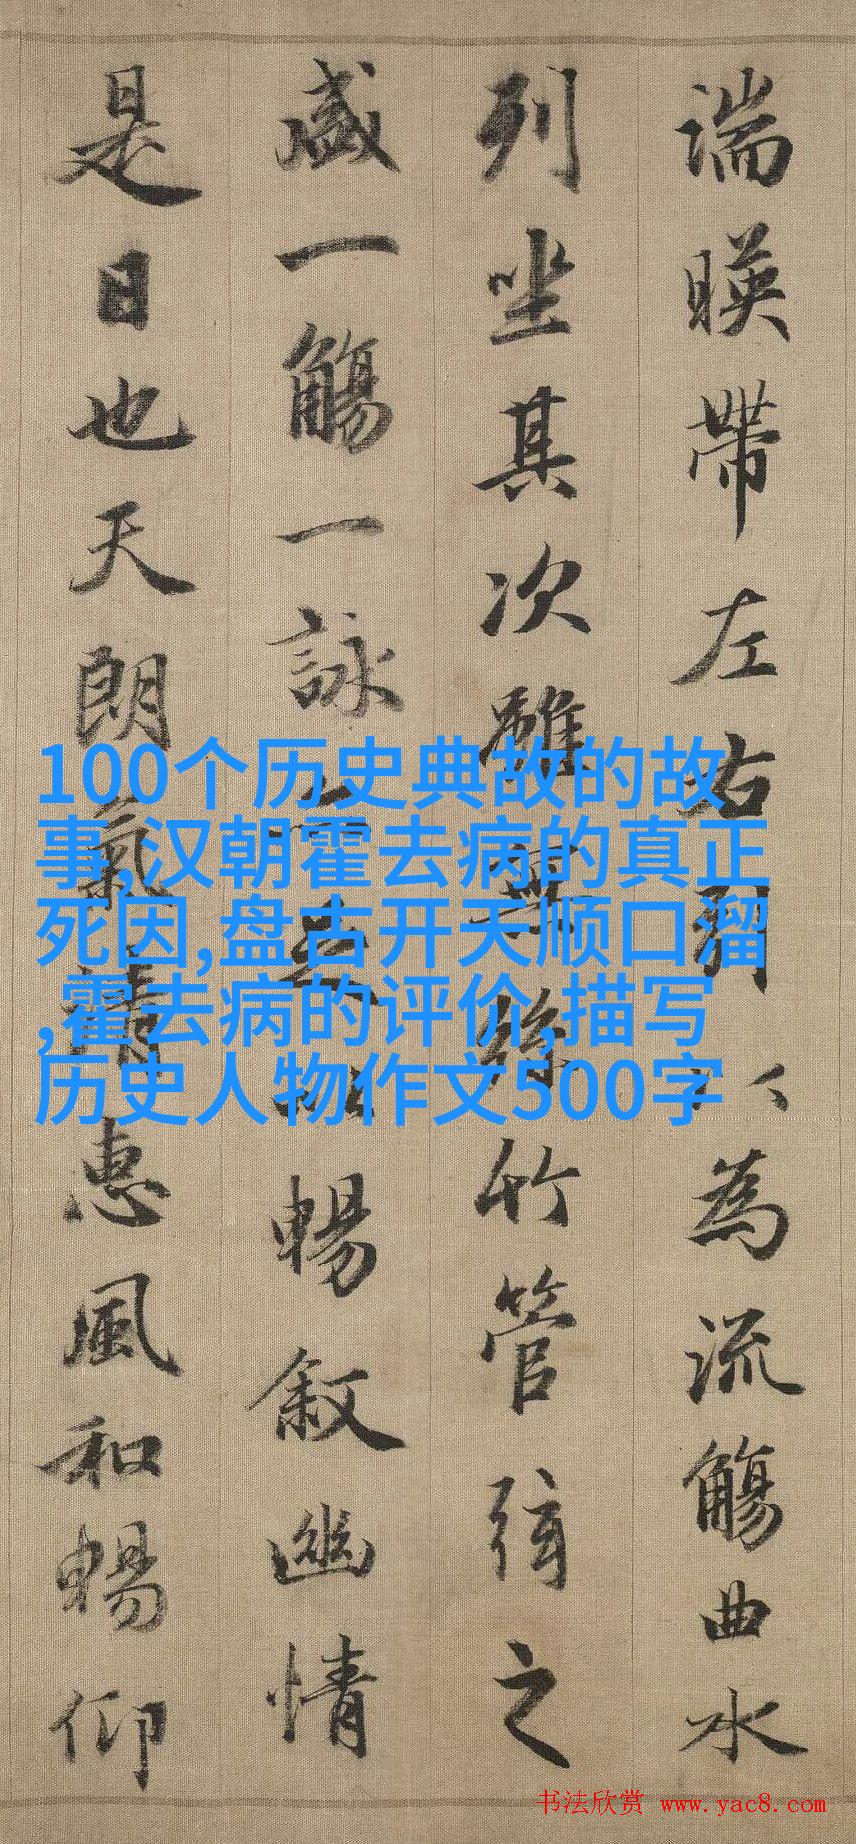 湍暎帶左右引以為流觴曲水
列坐其次雖無絲竹管弦之
盛一觴一詠亦足以暢叙幽情
是日也天朗氣清惠風和暢仰
100个历史典故的故
事,汉朝霍去病的真正
死因,盘古开天顺口溜
,霍去病的评价,描写
历史人物作文500字
书法欣赏 www.yac8.com